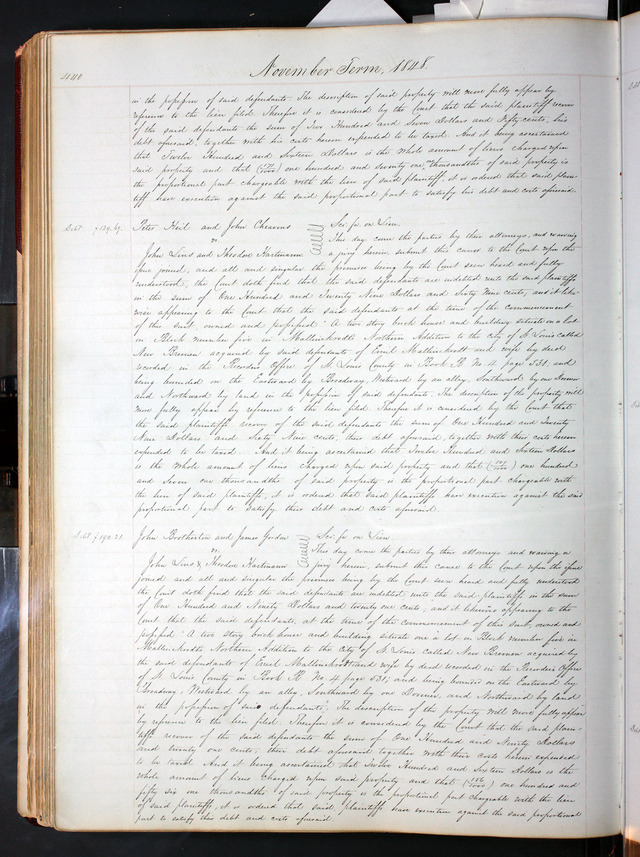 440
November Term, 1848.
in the possession of said defendants. The description of said property will more fully appear by
reference to the lien filed. Therefore it is considered by the Court that the said plaintiff recover
of the said defendants the sum of Two Hundred and Seven Dollars and Fifty cents, his
debt aforesaid, together with his costs herein expended to be taxed. And it being ascertained
that Twelve Hundred and Sixteen Dollars is the whole amount of liens charged upon
said property and that one hundred and seventy one thousandths of said property is
the proportional part chargeable with the lien of said plaintiff, it is ordered that said plain-
tiff have execution against the said proportional part to satisfy his debt and costs aforesaid.
Peter Heil and John Chearns Sci. fa on Lien.
vs This day come the parties by their attorneys, and waiving
John Lins and Theodore Hartmann a jury herein, submit this cause to the Court upon the
issue joined, and all and singular the premises being by the Court seen heard and fully
understood, the Court doth find that the said defendants are indebted unto the said plaintiffs
in the sum of One Hundred and Twenty Nine Dollars and Sixty Nine cents; and it like-
wise appearing to the Court that the said defendants at the time of the commencement
of this suit, owned and possessed: A two story brick house and building situate on a lot
in Block number five in Mallinckrodts Northern Addition to the city of St Louis called
New Bremen acquired by said defendants of Emil Mallinckrodt and wife by deed
recorded in the Recorders Office of St Louis County in Book R No 4 page 531, and
being bounded on the Eastward by Broadway, Westward by an alley, Southward by one
and Northward by land in the possession of said defendants. The description of the property will
more fully appear by reference to the lien filed. Therefore it is considered by the Court that
the said plaintiffs recover of the said defendants the sum of One Hundred and Twenty
Nine Dollars and Sixty Nine cents, their debt aforesaid, together with their costs herein
expended to be taxed. And it being ascertained that Twelve Hundred and Sixteen Dollars
is the whole amount of liens charged upon said property and that one hundred
and Seven one thousandths of said property is the proportional part chargeable with
the lien of said plaintiffs, it is ordered that said plaintiffs have execution against the said
proportional part to satisfy their debt and costs aforesaid.
John Brotherton and James Gordon Sci. fa on Lien
vs. This day come the parties by their attorneys and waiving a
John Lins & Theodore Hartmann jury herein, submit this cause to the Court upon the issue
joined and all and singular the premises being by the Court seen heard and fully understood
the Court doth find that the said defendants are indebted unto the said plaintiffs in the sum
of One Hundred and Ninety Dollars and twenty one cents, and it likewise appearing to the
Court that the said defendants, at the time of the commencement of this suit, owned and
possessed: A two story brick house and building situate one a lot in Block number five in
Mallinckrodts Northern Addition to the City of St Louis called New Bremen acquired by
the said defendants of Emil Mallinckrodt and wife by deed recorded in the Recorders Office
of St Louis County in Book R No 4 page 531; and being bounded on the Eastward by
Broadway, Westward by an alley, Southward by one and Northward by land
in the possession of said defendants. The description of the property will more fully appear
by reference to the lien filed. Therefore it is considered by the Court that the said plain-
tiffs recover of the said defendants the sum of One Hundred and Ninety Dollars
and twenty one cents, their debt aforesaid together with their costs herein expended
to be taxed. And it being ascertained that Twelve Hundred and Sixteen Dollars is the
whole amount of liens charged upon said property and that one hundred and
fifty six one thousandths of said property is the proportional part chargeable with the lien
of said plaintiff, it is ordered that said plaintiffs have execution against the said proportional
part to satisfy their debt and costs aforesaid.